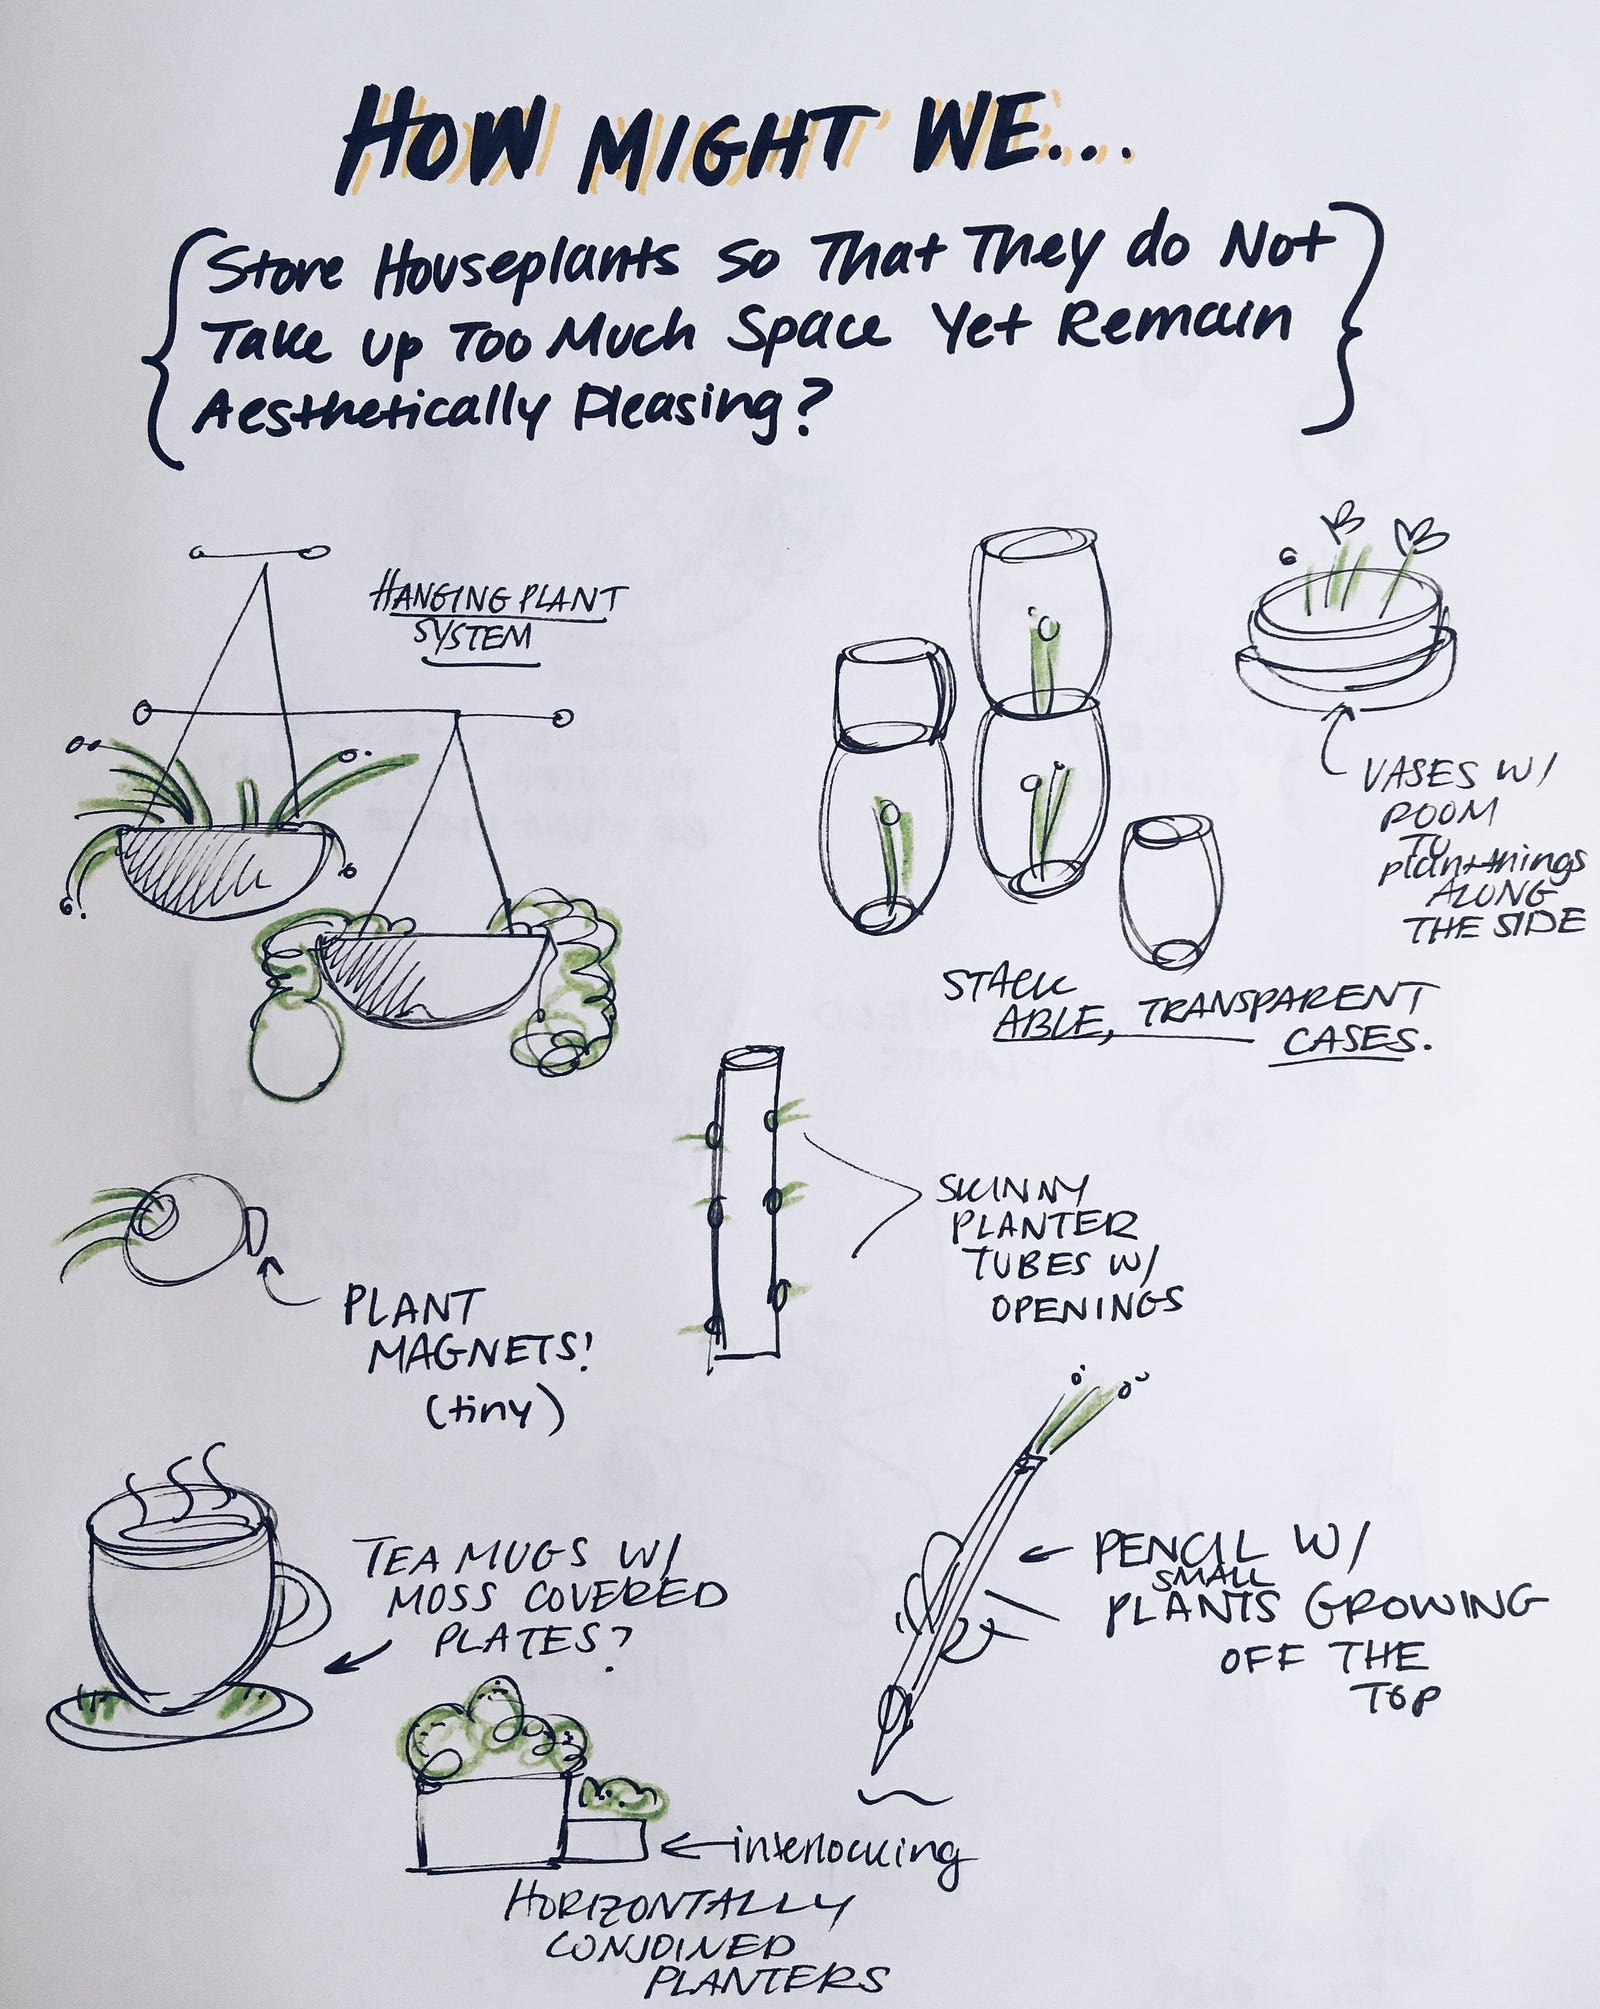 HOW MIGHT WE...
Store Houseplants So That They do Not
Take up Too Much Space Yet Remain
Aesthetically Pleasing?
HANGING PLANT
SYSTEM
VASES W/
ROOM
TO
plant things
ALONG
THE SIDE
STACK
ABLE, TRANSPARENT
CASES.
SKINNY
PLANTER
TUBES W/
OPENINGS
PLANT
MAGNETS!
(tiny)
TEA MUGS W/
MOSS COVERED
PLATES?
PENCIL W/
SMALL
PLANTS GROWING
OFF THE
TOP
interlocking
HORIZONTALLY
CONJOINED
PLANTERS